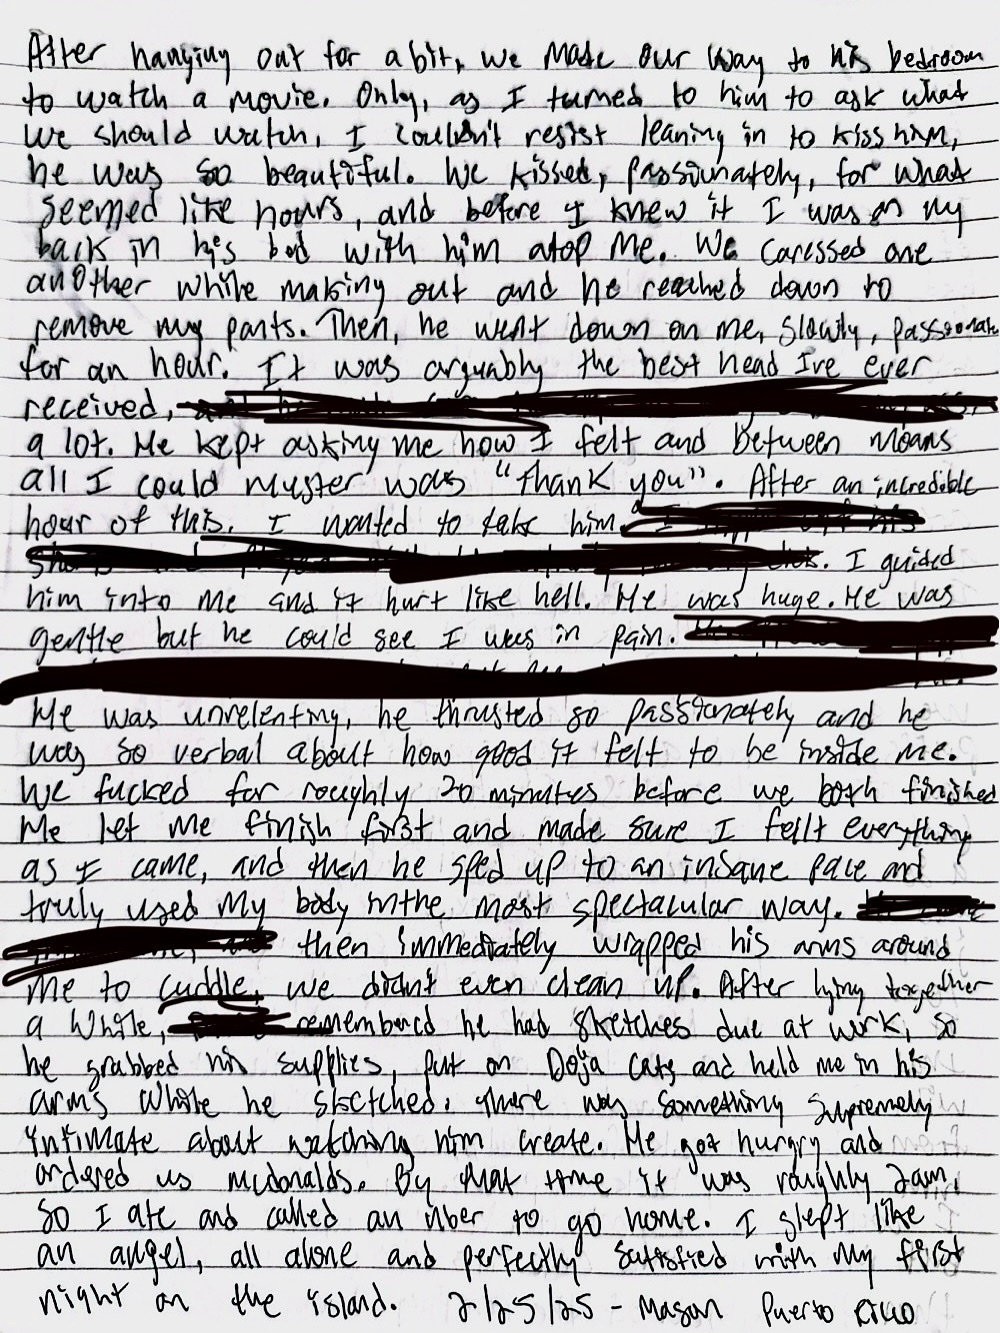 After hanging out for a bit, we made our way to his bedroom
to watch a movie. Only, as I turned to him to ask what
we should watch, I couldn't resist leaning in to kiss him,
he was so beautiful. We kissed, passionately, for what
seemed like hours, and before I knew it I was on my
back in his bed with him atop me. We caressed one
another while making out and he reached down to
remove my pants. Then, he went down on me, slowly, passionate
for an hour. It was arguably the best head I've ever
received,
a lot. He kept asking me how I felt and between moans
all I could muster was "thank you". After an incredible
hour of this, I wanted to take him.
I guided
him into me and it hurt like hell. He was huge. He was
gentle but he could see I was in pain.
He was unrelenting, he thrusted so passionately and he
was so verbal about how good it felt to be inside me.
We fucked for roughly 20 minutes before we both finished
He let me finish first and made sure I fellt everything
as I came, and then he sped up to an insane pace and
truly used my body in the most spectacular way.
then immediately wrapped his arms around
me to cuddle, we didn't even clean up. After lying together
a while, remembered he had sketches due at work, so
he grabbed his supplies, put on Doja Cat, and held me in his
arms while he sketched. There was something supremely
intimate about watching him create. He got hungry and
ordered us mcdonalds. By that time it was roughly 2am,
so I ate and called an uber to go home. I slept like
an angel, all alone and perfectly satisfied with my first
night on the island. 2/25/25 - Mason Puerto Rico